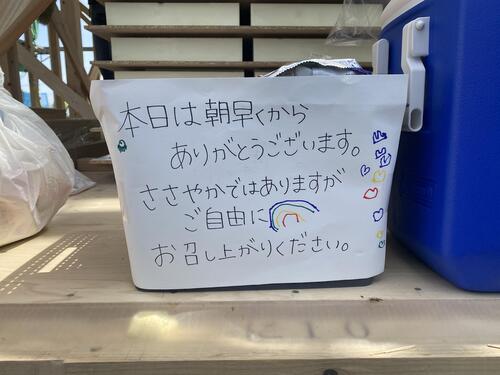 本日は朝早くから
ありがとうございます。
ささやかではありますが
ご自由に
お召し上がりください。